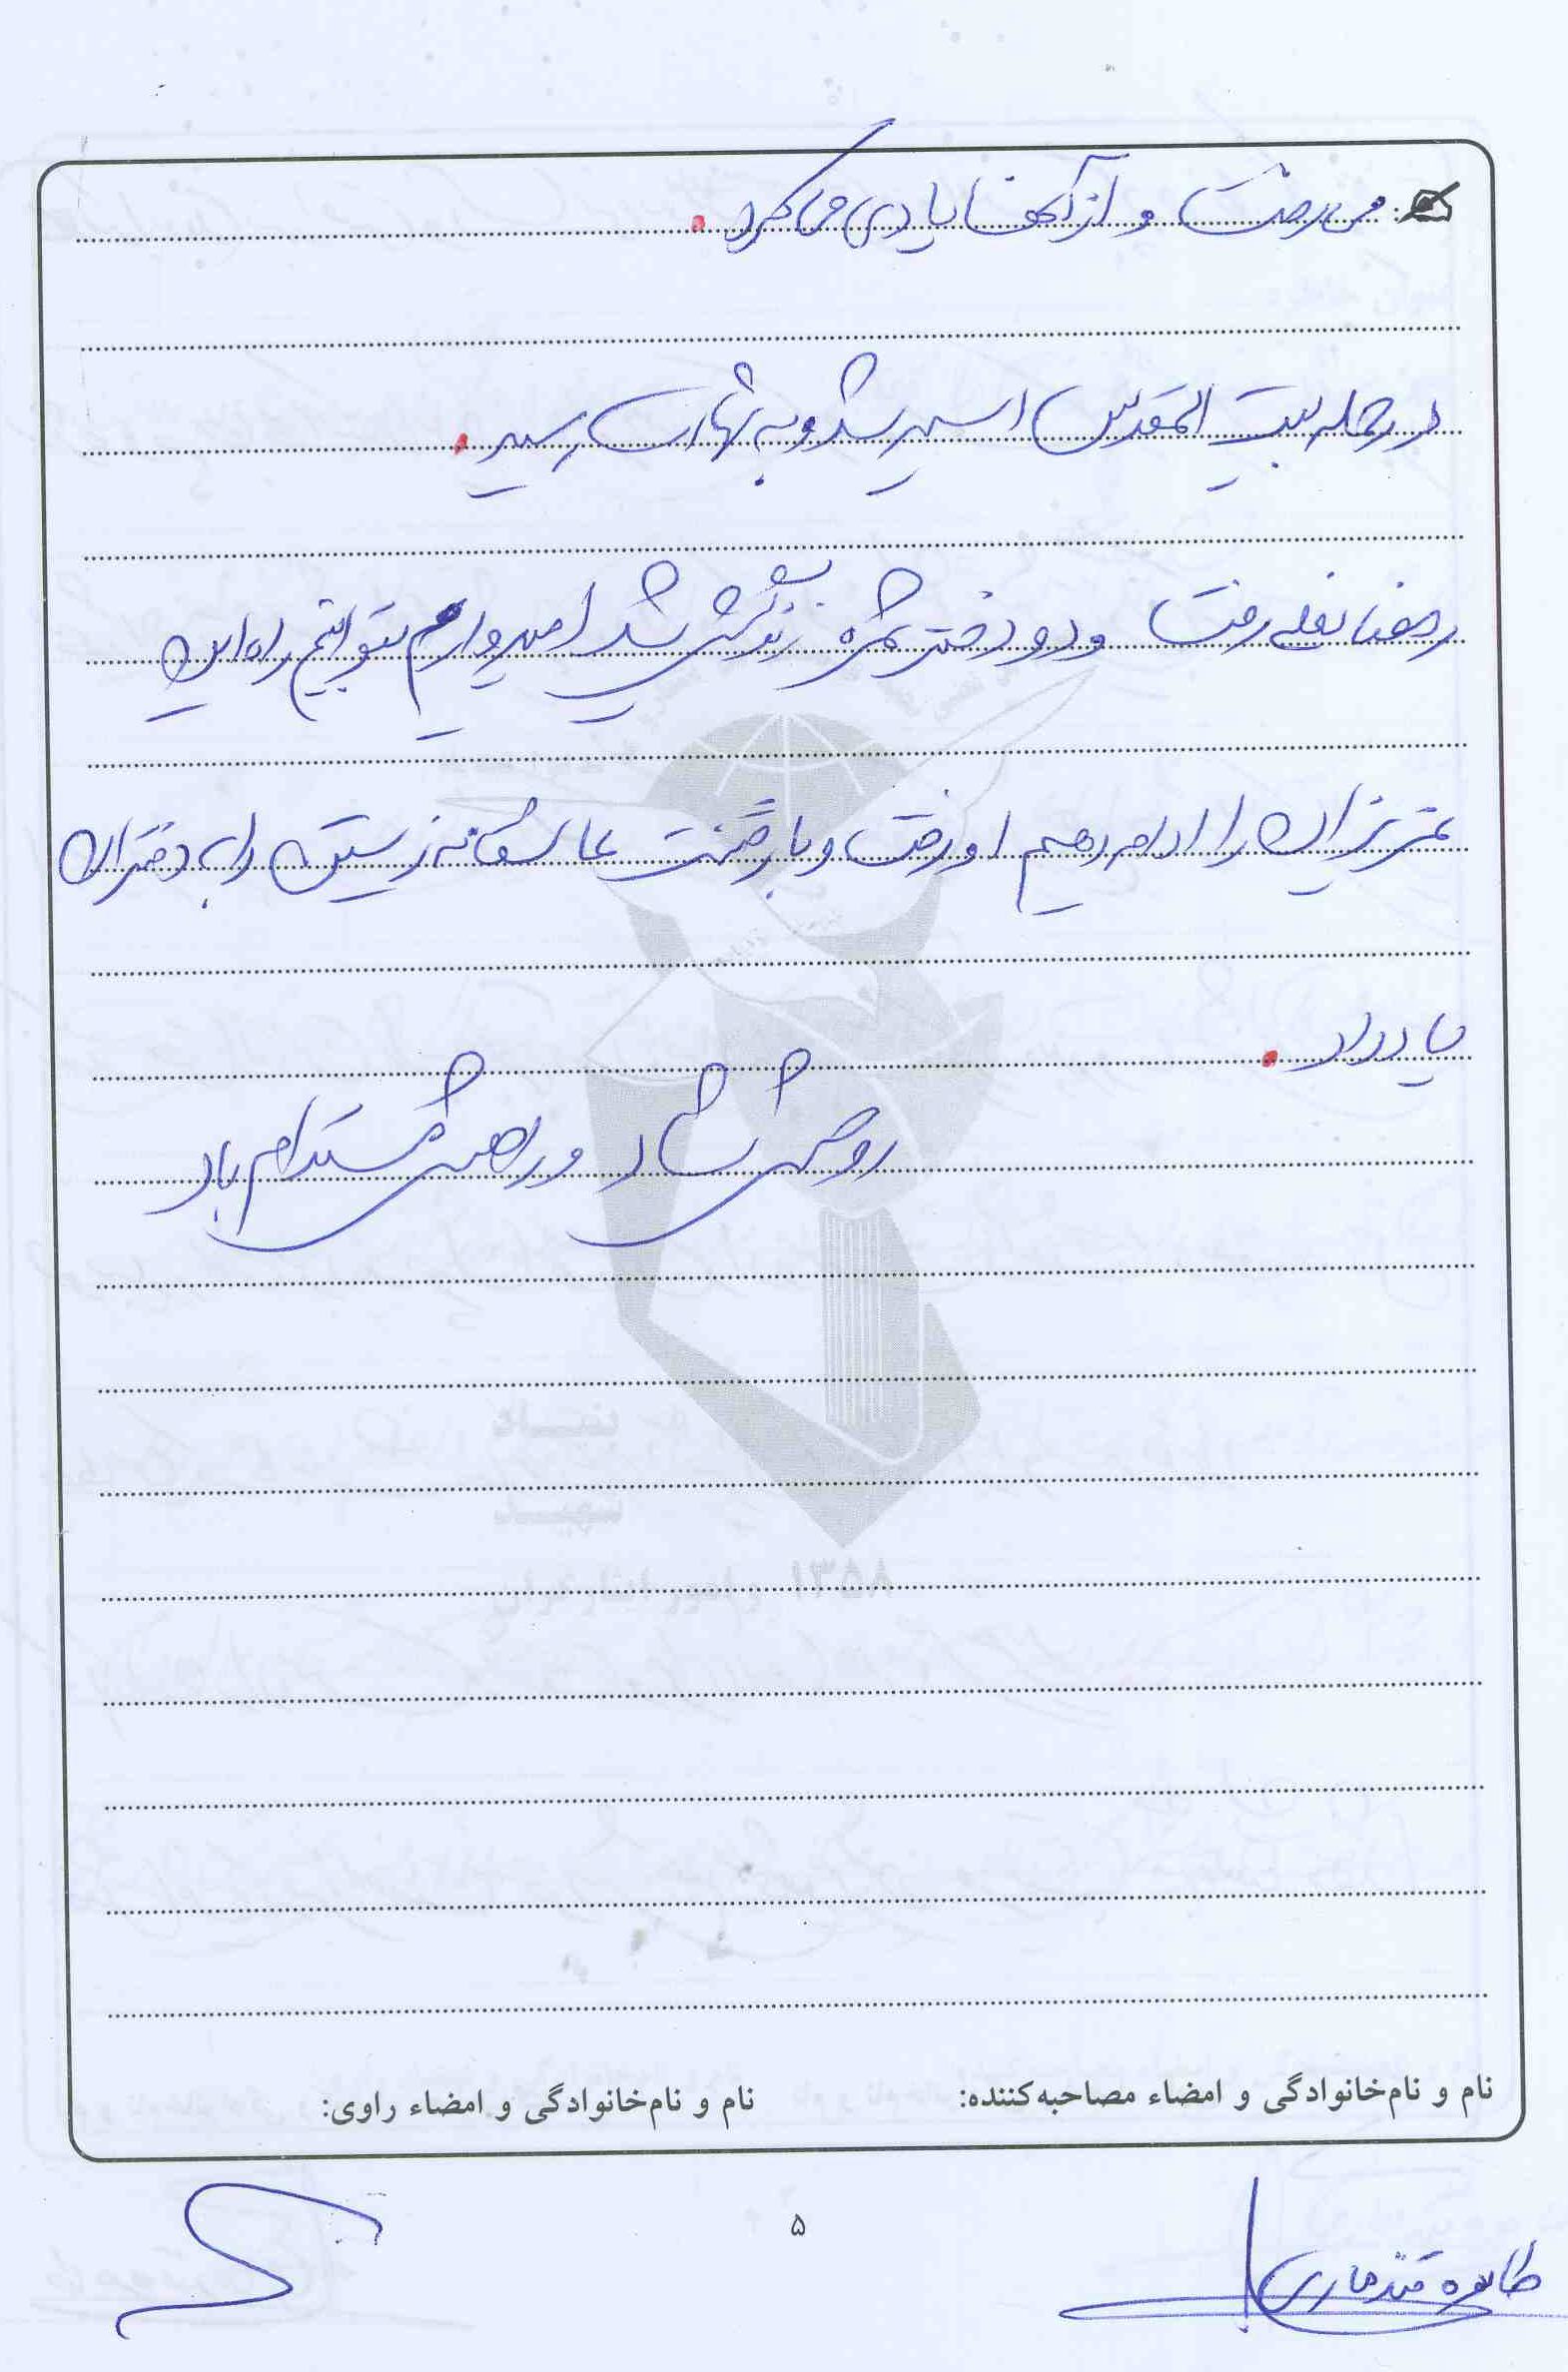 می رفت و از آنها یادی می کرد.
در حمله بیت المقدس اسیر شد و به شهادت رسید.
رمضانعلی رفت و دو دختر ثمره زندگیش شد امیدوارم بتوانیم راه این
عزیزان را ادامه دهیم او رفت و با رفتنش عاشقانه زیستن را به دختران
یاد داد.
روحش شاد و راهش مستدام باد
بنیاد
شهید
۱۳۵۸ و امور ایثارگران
نام و نام‌خانوادگی و امضاء مصاحبه‌کننده:
نام و نام‌خانوادگی و امضاء راوی:
۵
طاهره قندهاری